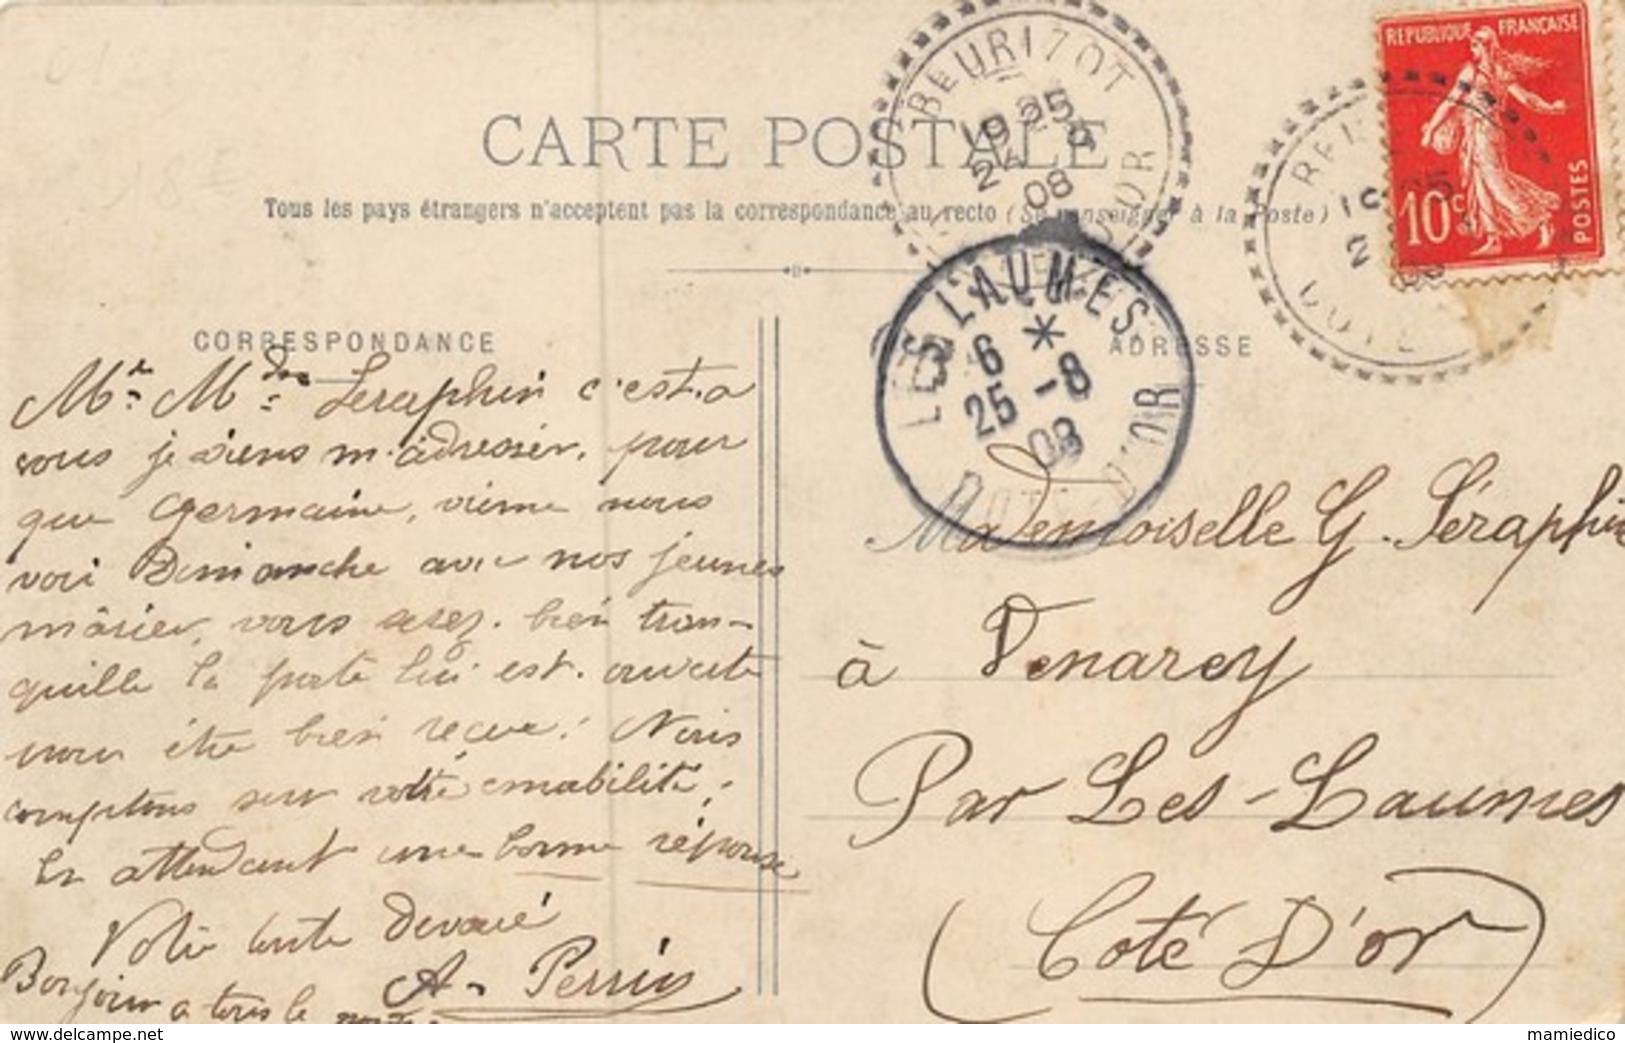 CARTE POSTALE
Tous les pays étrangers n'acceptent pas la correspondance au recto (Se renseigner à la Poste)
REPUBLIQUE FRANÇAISE
10c POSTES
BEURIZOT
19 25
24 8
08
D'OR
LES LAUMES
6 *
25 -8
08
COTE-D'OR
CORRESPONDANCE
ADRESSE
Mr. M Seraphin c'est.a
vous je viens m'adresser. pour
que Germaine, vienne nous
voir Dimanche avec nos jeunes
màrier, vous serez. bien tran-
quille la porte lui est. ouverte
pour être bien reçue. Nous
comptons sur votre amabilité,
En attendant une bonne réponse
Votre toute Devoué
A. Perrin
Bonjour a tous le
Mademoiselle G. Séraphin
à Venarey
Par Les-Laumes
(Coté D'or)
www.delcampe.net
mamiedico